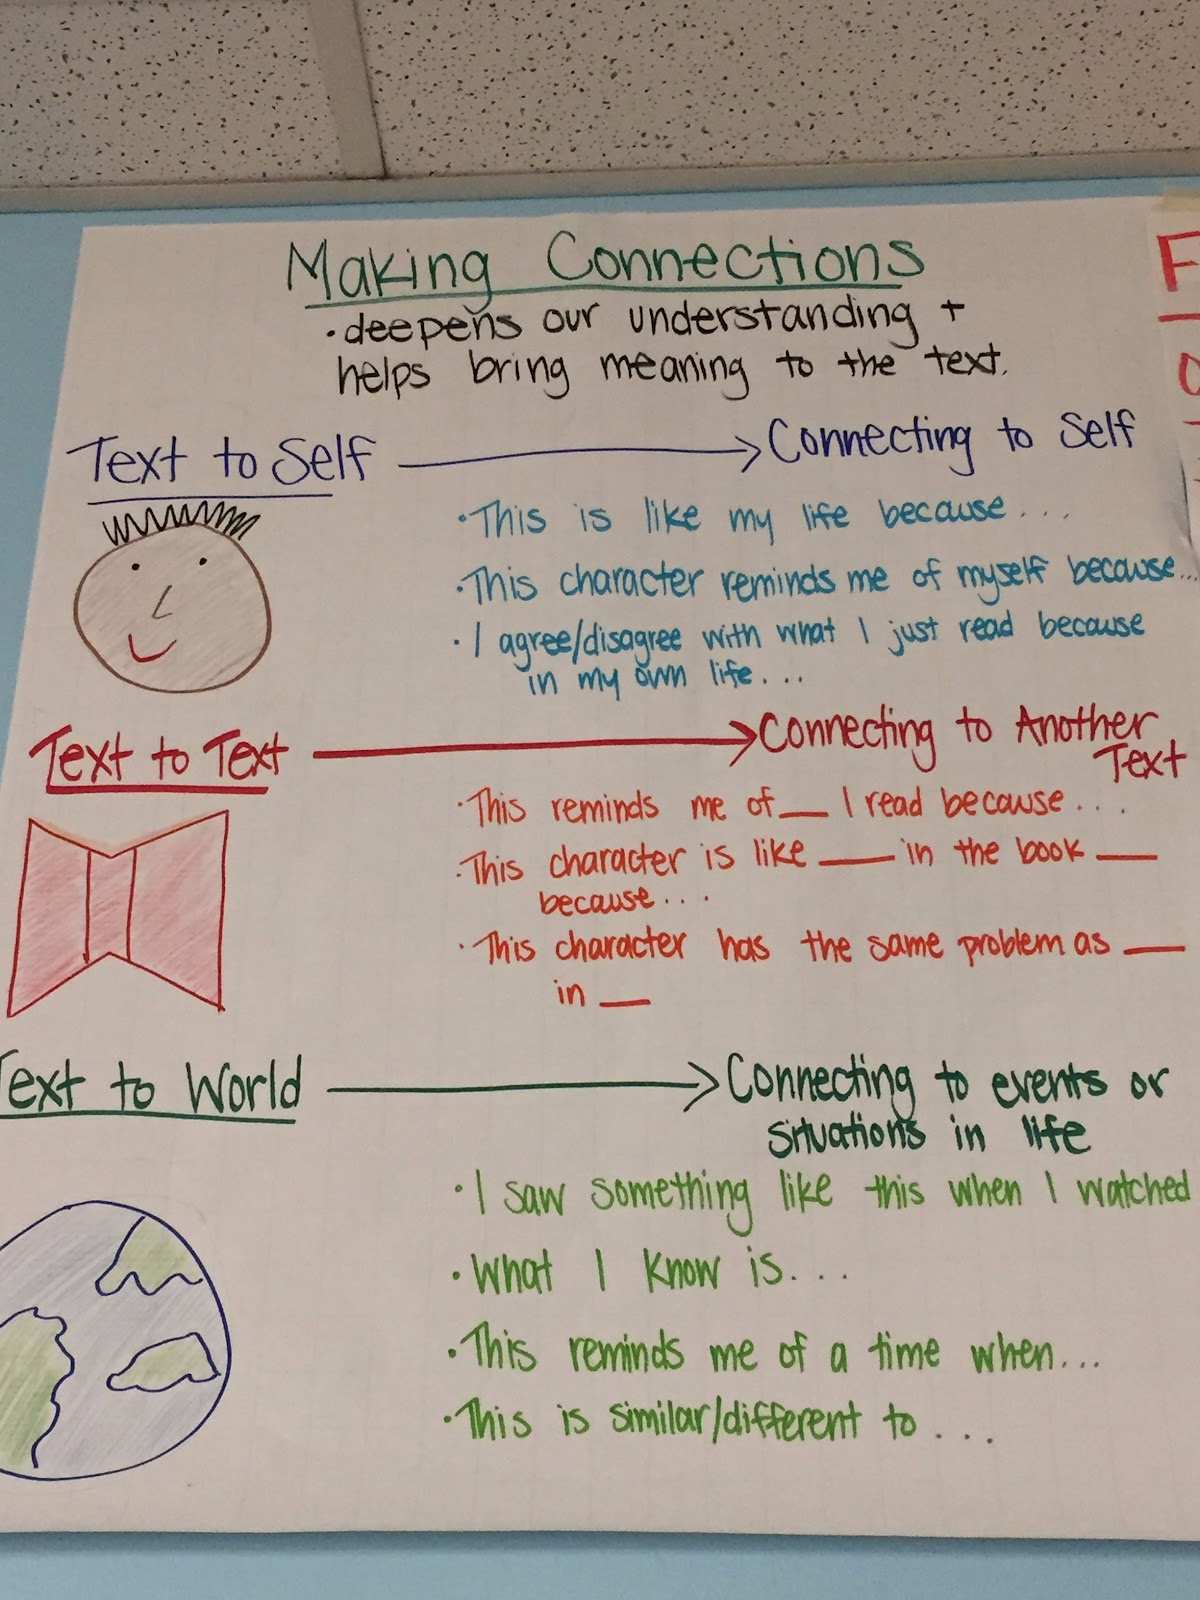 Making Connections
·deepens our understanding +
helps bring meaning to the text.
Text to Self → Connecting to Self
·This is like my life because...
·This character reminds me of myself because...
·I agree/disagree with what I just read because
in my own life...
Text to Text → Connecting to Another
Text
·This reminds me of __ I read because...
·This character is like ___ in the book ___
because...
·This character has the same problem as ___
in __
Text to World → Connecting to events or
situations in life
·I saw something like this when I watched
·What I know is...
·This reminds me of a time when...
·This is similar/different to...
F